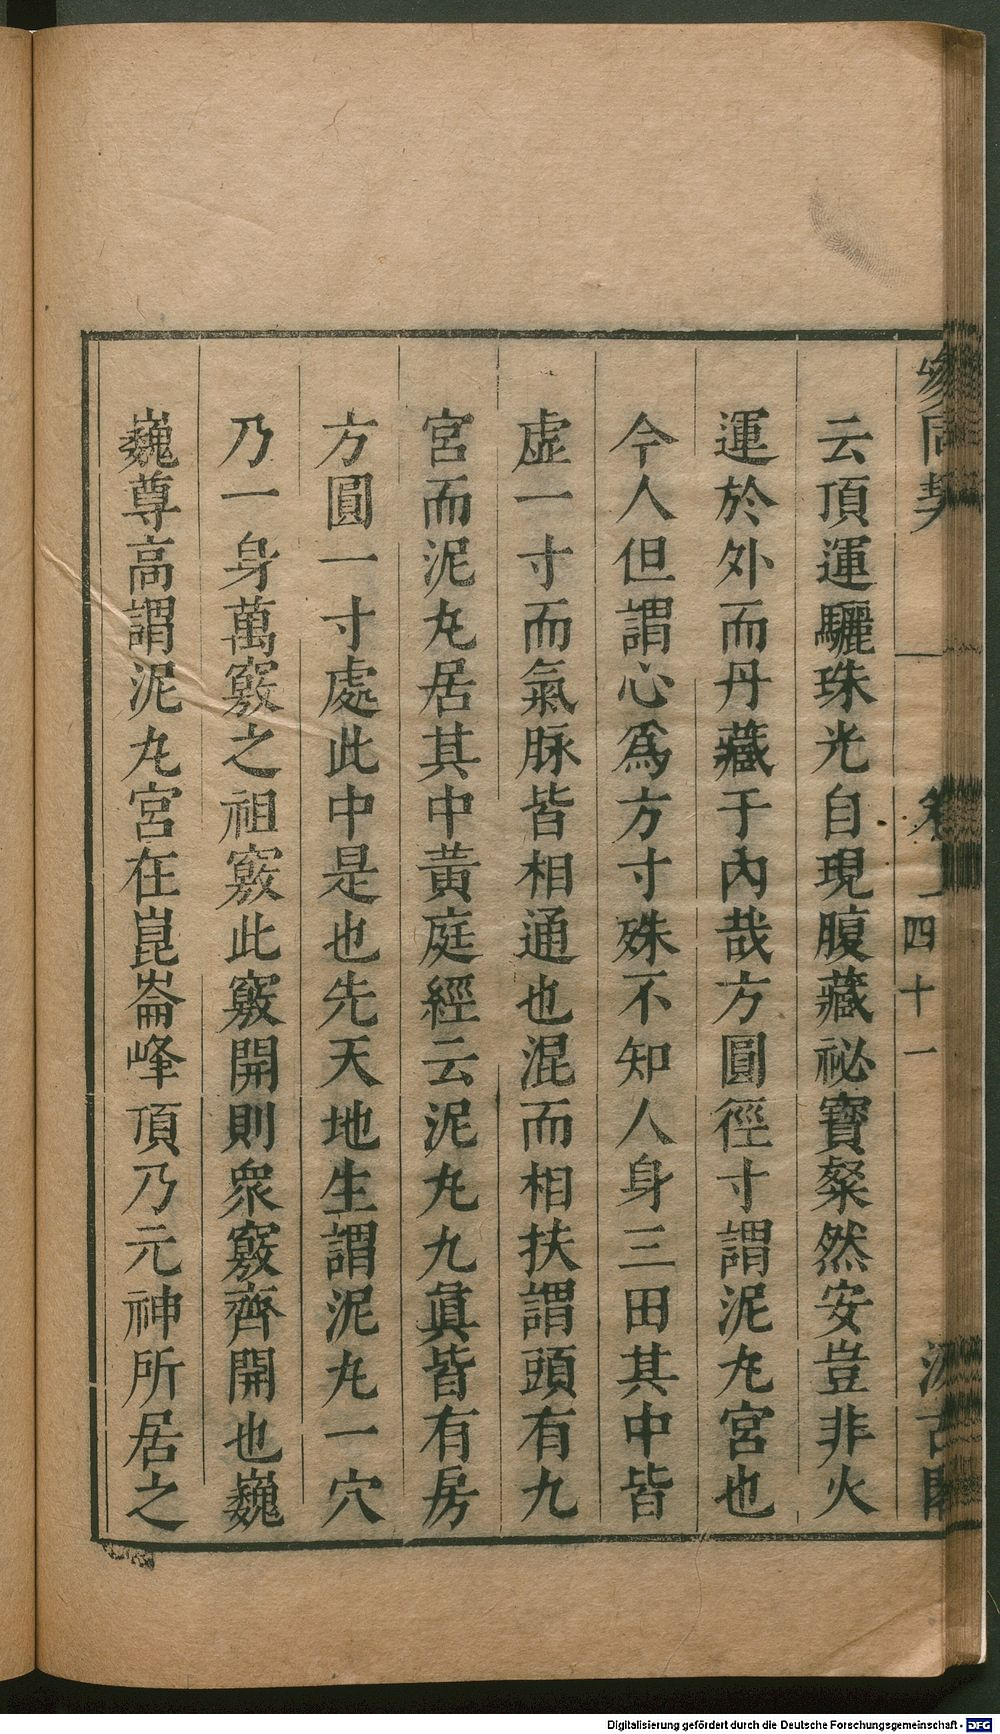 參同契 卷一 四十一 汲古閣
云頂運驪珠光自現腹藏祕寶粲然安豈非火
運於外而丹藏于內哉方圓徑寸謂泥丸宮也
今人但謂心爲方寸殊不知人身三田其中皆
虛一寸而氣脉皆相通也混而相扶謂頭有九
宮而泥丸居其中黃庭經云泥丸九眞皆有房
方圓一寸處此中是也先天地生謂泥丸一穴
乃一身萬竅之祖竅此竅開則衆竅齊開也巍
巍尊高謂泥丸宮在崑崙峰頂乃元神所居之
Digitalisierung gefördert durch die Deutsche Forschungsgemeinschaft - DFG